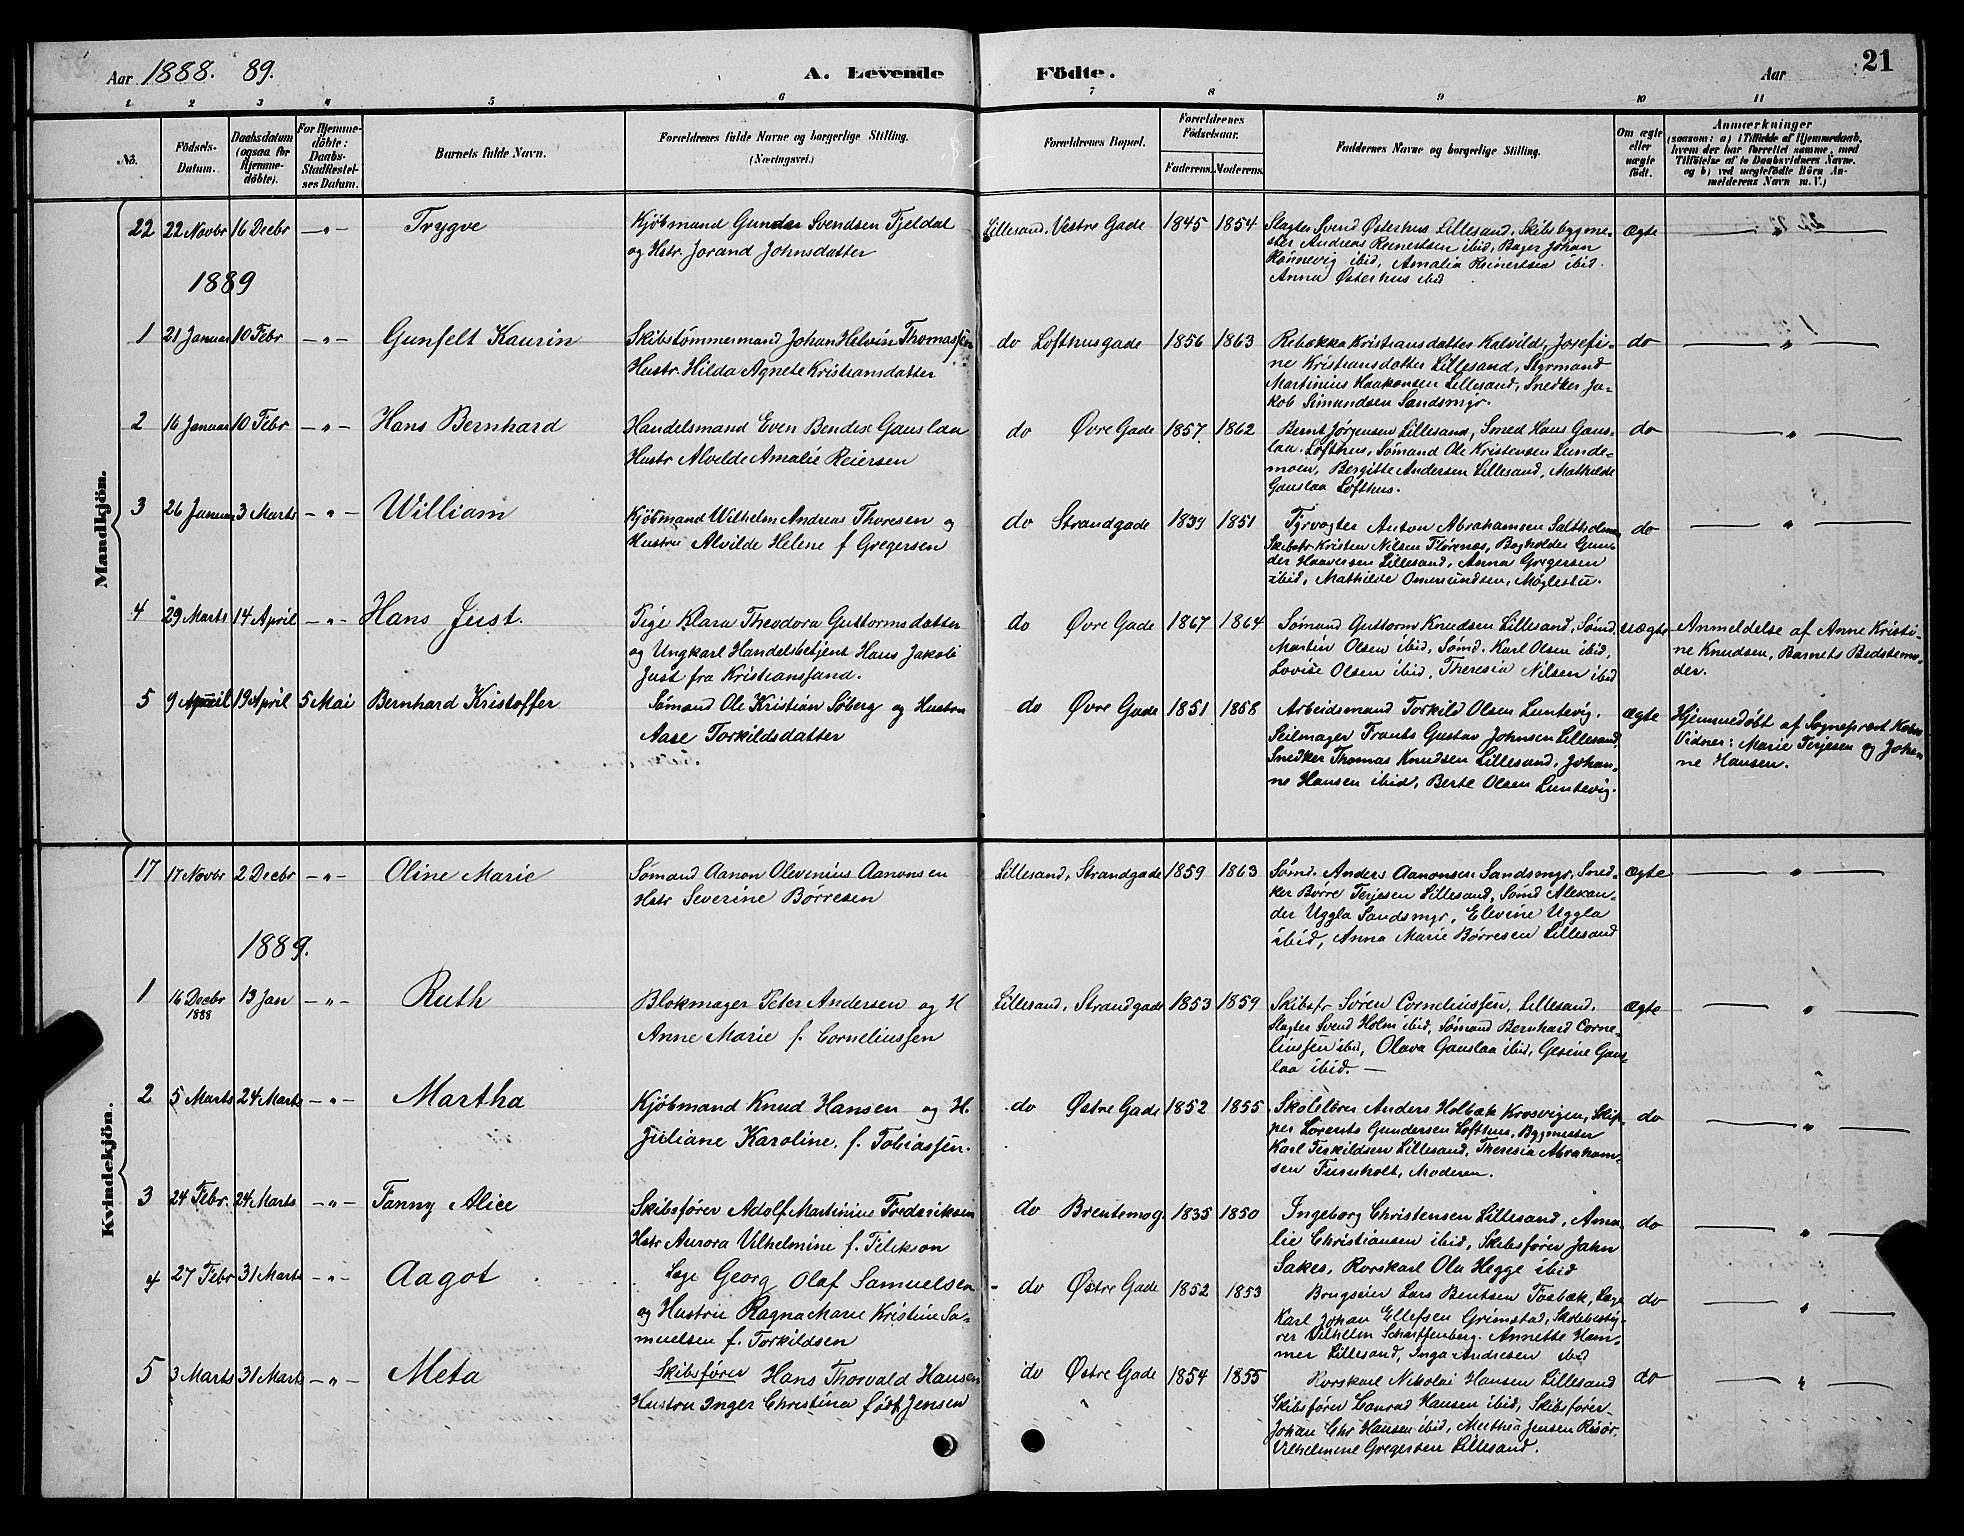 Aar 1888. 89.
A. Levende Födte.
Aar 21
1 2 3 4 5 6 7 8 9 10 11
No.
Födsels-Datum.
Daabsdatum (ogsaa for Hjemme-döbte).
For Hjemme-döbte: Daabs-Stadfæstel-ses Datum.
Barnets fulde Navn.
Forældrenes fulde Navne og borgerlige Stilling.
(Næringsvei.)
Forældrenes Bopæl.
Forældrenes Födselsaar.
Faderens. Moderens.
Faddernes Navne og borgerlige Stilling.
Om ægte eller uægte födt.
Anmærkninger
(saasom: a) i Tilfælde af Hjemmedaab,
hvem der har forrettet samme, med
Tilföielse af to Daabsvidners Navne.
og b) ved uægtefödte Börn An-
melderens Navn m. V.)
Mandkjön.
22 22 Novbr 16 Decbr -"- Trygve
Kjøbmand Gunder Svendsen Fjeldal
og Hstr. Jorand Johnsdatter
Lillesand. Vestre Gade 1845 1854
Slagter Svend Østerhus Lillesand, Skibsbygme-
ster Andreas Reinertsen ibid, Bager Johan
Rønnevig ibid, Amalia Reinertsen ibid.
Anna Østerhus ibid
ægte "
1889
1 21 Januar 10 Febr -"- Gunfelt Kaurin
Skibstømmermand Johan Helvin Thomassen
Hustr. Hilda Agnete Kristiansdatter
do Lofthusgade 1856 1863
Rebekka Kristiansdatter Kalvild, Josefi-
ne Kristiansdatter Lillesand, Styrmand
Martinius Haakonsen Lillesand, Snedker Ja-
kob Simundsen Sandsmyr.
do "
2 16 Januar 10 Febr -"- Hans Bernhard
Handelsmand Even Bendix Gauslaa
Hustr Alvilde Amalie Reiersen
do Øvre Gade 1857. 1862
Bernt Jørgensen Lillesand, Smed Hans Gaus-
laa. Lofthus, Sømand Ole Kristensen Lunde-
moen, Bergitte Andersen Lillesand, Mathilde
Gauslaa Lofthus.
do "
3 26 Januar 3 Marts -"- William
Kjøbmand Wilhelm Andreas Thoresen og
Hustru Alvilde Helene f Gregersen
do Strandgade 1839 1851
Fyrvogter Anton Abrahamsen Saltholmen
Skibsfr Kristen Nilsen Flørenes, Bogholder Gun-
der Haavorsen Lillesand, Anna Gregersen
ibid, Mathilde Omundsen, Møglestu.
do "
4 29 Marts 14 April -"- Hans Just.
Pige Klara Theodora Guttormsdatter
og Ungkarl Handelsbetjent Hans Jakob
Just fra Kristianssand.
do Øvre Gade 1867 1864
Sømand Guttorm Knudsen Lillesand, Sømd.
Martin Olsen ibid, Sømd. Karl Olsen ibid,
Lovise Olsen ibid, Theresia Nilsen ibid
uægte
Anmeldelse af Anne Kristi-
ne Knudsen, Barnets Bedstemo-
der.
5 9 April 19 April 5 Mai Bernhard Kristoffer
Sømand Ole Kristian Soberg og Hustru
Aase Torkildsdatter
do Øvre Gade 1851 1858
Arbeidsmand Torkild Olsen Luntevig.
Seilmager Frants Gustav Johnsen Lillesand,
Snedker Thomas Knudsen Lillesand, Johan-
ne Hansen ibid, Berte Olsen Luntevig.
ægte
Hjemmedøbt af Sogneprest
Vidner: Marie Terjesen og Johan-
ne Hansen.
Kvindekjön.
17 17 Novbr 2 Decbr -"- Oline Marie
Sømand Aanon Olevinius Aanonsen
Hstr Severine Børresen
Lillesand, Strandgade 1859 1863
Sømd. Anders Aanonsen Sandsmyr, Sned-
ker Børre Terjesen Lillesand, Sømd Alexan-
der Uggla Sandsmyr, Elevine Uggla
ibid, Anna Marie Børresen Lillesand
ægte "
1889.
1 16 Decbr 1888 13 Jan -"- Ruth
Blokmager Peter Andersen og H
Anne Marie f. Corneliussen
Lillesand, Strandgade 1853 1859
Skibsfr Søren Corneliussen, Lillesand.
Slagter Svend Holm ibid, Sømand Bernhard Corne-
liussen ibid, Olava Gauslaa ibid, Gesine Gaus-
laa ibid. —
ægte "
2 5 Marts 24 Marts -"- Martha
Kjøbmand Knud Hansen og H.
Juliane Karoline, f. Tobiassen.
do Østre Gade 1852 1855
Skolelærer Anders Holbæk Krosvigen, Skip-
per Lorents Gundersen Lofthus, Bygmester
Karl Terkildsen Lillesand, Theresia Abraham-
sen Furuholt, Moderen.
do "
3 24 Febr. 24 Marts -"- Fanny Alice
Skibsfører Adolf Martinius Frederiksen
Hstr Aurora Vilhelmine f. Fileksen
do Brentemog. 1835 1850
Ingeborg Christensen Lillesand, Ama-
lie Christiansen ibid, Skibsfører Jahn
Sakes, Rorskarl Ola Hegge ibid
do "
4 27 Febr 31 Marts -"- Aagot
Læge Georg Olaf Samuelsen
og Hustru Ragna Marie Kristine Sa-
muelsen f. Torkildsen
do Østre Gade 1852 1853
Brugseier Lars Bentsen Fosbæk, Læge
Karl Johan Ellefsen Grimstad, Skolebesty-
rer Vilhelm Scharffenberg. Annette Ham-
mer Lillesand, Inga Andresen ibid
do "
5 3 Marts 31 Marts -"- Meta
Skibsfører Hans Thorvald Hansen
Hustru Inger Christina født Jensen
do Østre Gade 1854 1855
Rorskarl Nikolai Hansen Lillesand
Skibsfører Conrad Hansen ibid, Skibsfører
Johan Chr Hansen ibid, Mathea Jensen Risør,
Vilhelmine Gregersen Lillesand.
do "